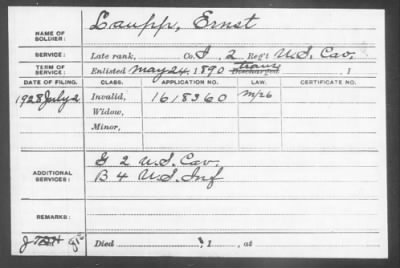 NAME OF SOLDIER: Laupp, Ernst
SERVICE: Late rank, Co. I, 2 Reg't U.S. Cav.
TERM OF SERVICE: Enlisted May 24, 1890 Discharged trans , 1
DATE OF FILING. CLASS. APPLICATION NO. LAW. CERTIFICATE NO.
1928 July 2 Invalid, 1618360 m/26
Widow,
Minor,
ADDITIONAL SERVICES: G 2 U.S. Cav.
B 4 U.S. Inf
REMARKS:
Died , 1 , at